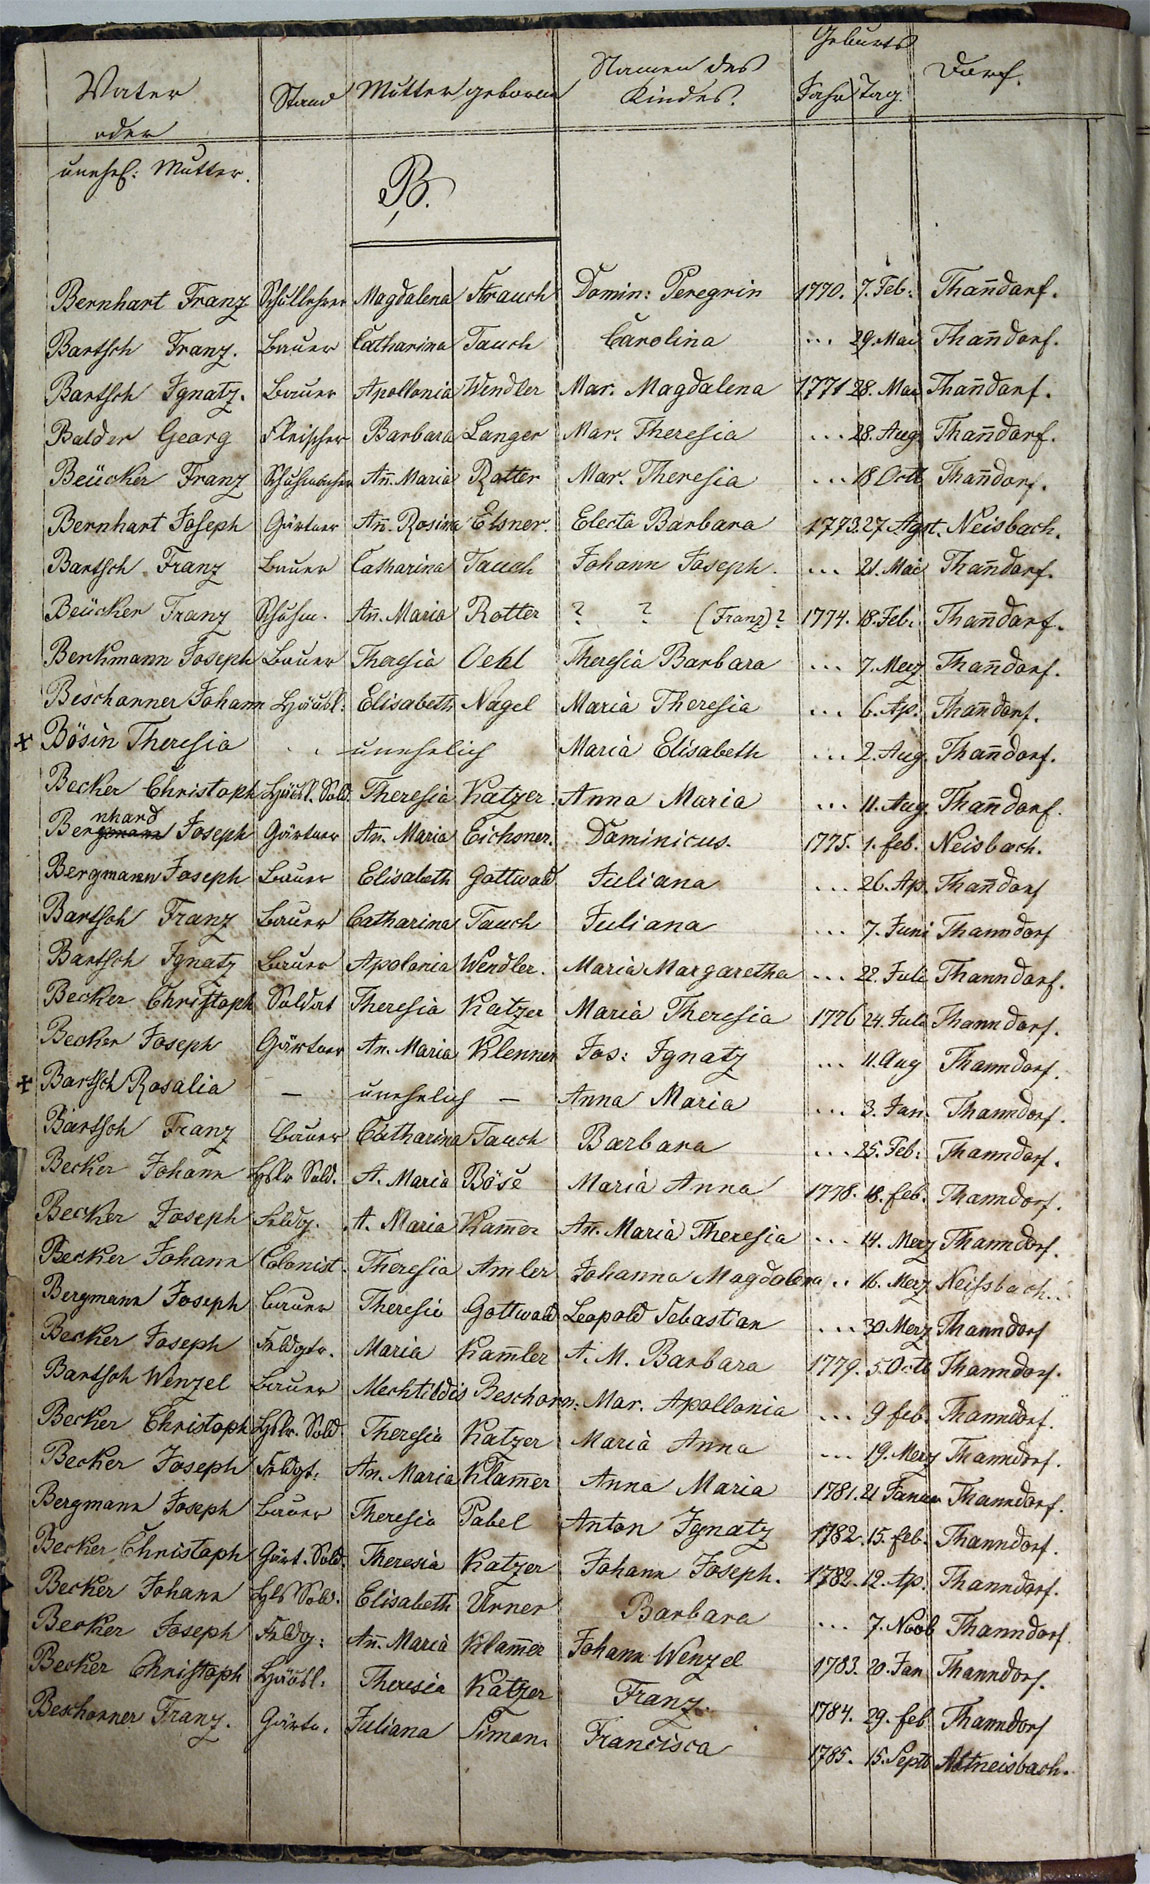 Vater oder unehel: Mutter. Stand Mutter geborene Namen des Kindes. Geburts Jahr Tag. Dorf.
B.
Bernhart Franz Schullehrer Magdalena Strauch Domin: Peregrin 1770. 7. Feb: Than̄dorf.
Bartsch Franz. Bauer Catharina Tauch Carolina ... 29. Mai Than̄dorf.
Bartsch Ignatz. Bauer Apollonia Wendler Mar. Magdalena 1771 28. Mai Than̄dorf.
Balder Georg Fleischer Barbara Langer Mar. Theresia ... 28. Aug. Than̄dorf.
Beücker Franz Schuhmacher An̄. Maria Rotter Mar. Theresia ... 18 Octb Than̄dorf.
Bernhart Joseph Gärtner An̄. Rosina Elsner. Electa Barbara 1773. 27. Agst. Neisbach.
Bartsch Franz Bauer Catharina Tauch Johann Joseph. ... 21. Mai Than̄dorf.
Beücker Franz Schuhm. An̄. Maria Rotter ? ? (Franz)? 1774. 18. Feb: Than̄dorf.
Berkmann Joseph Bauer Theresia Oehl Theresia Barbara ... 7. Merz Than̄dorf.
Beschorner Johann Häusl: Elisabeth Nagel Maria Theresia ... 6. Ap. Than̄dorf.
Bösin Theresia . . unehelich Maria Elisabeth ... 2. Aug. Than̄dorf.
Becker Christoph Häusl. Sold. Theresia Katzer Anna Maria ... 11. Aug. Than̄dorf.
nhard
Bergmann Joseph Gärtner An̄. Maria Eichsner. Dominicus. 1775. 1. feb. Neisbach.
Bergmann Joseph Bauer Elisabeth Gottwald Juliana ... 26. Ap. Than̄dorf
Bartsch Franz Bauer Catharina Tauch Juliana ... 7. Juni Thanndorf
Bartsch Ignatz Bauer Apolonia Wendler. Maria Margaretha ... 22. Juli Thanndorf.
Becker Christoph Soldat Theresia Katzer Maria Theresia 1776 24. Juli Thanndorf.
Becker Joseph Gärtner An. Maria Klenner Jos: Ignatz ... 11. Aug Thanndorf.
Bartsch Rosalia — unehelich — Anna Maria ... 3. Jan. Thanndorf.
Bartsch Franz Bauer Catharina Tauch Barbara ... 25. Feb: Thanndorf.
Becker Johann Hslr Sold. A. Maria Böse Maria Anna 1778. 18. feb. Thanndorf.
Becker Joseph Feldg. A. Maria Kam̄er An̄. Maria Theresia ... 14. Merz Thanndorf.
Becker Johann Colonist. Theresia Amler Johanna Magdalena .. 16. Merz Neissbach.
Bergmann Joseph Bauer Theresia Gottwald Leopold Sebastian ... 30 Merz Thanndorf
Becker Joseph Feldgtr. Maria Kam̄ler A. M. Barbara 1779. 5 Octb Thanndorf.
Bartsch Wenzel Bauer Mechtildis Beschorn: Mar. Apollonia ... 9 feb. Thanndorf.
Becker Christoph Hslr. Sold. Theresia Katzer Maria Anna ... 19. Merz Thanndorf.
Becker Joseph Feldgt: An. Maria Klam̄er Anna Maria 1781. 21 Januar Thanndorf.
Bergmann Joseph Bauer Theresia Pabel Anton Ignatz 1782. 15. feb. Thanndorf.
Becker Christoph Gärt. Sold. Theresia Katzer Johann Joseph. 1782. 12. Ap. Thanndorf.
Becker Johann Hsl Sold. Elisabeth Urner Barbara ... 7. Novb Thanndorf.
Becker Joseph Feldg: An̄. Maria Klam̄er Johann Wenzel 1783. 20. Jan Thanndorf.
Becker Christoph Häusl: Theresia Katzer Franz. 1784. 29. feb. Thanndorf
Beschorner Franz. Gärtn. Juliana Simon. Francisca 1785. 15. Septb Altneisbach.